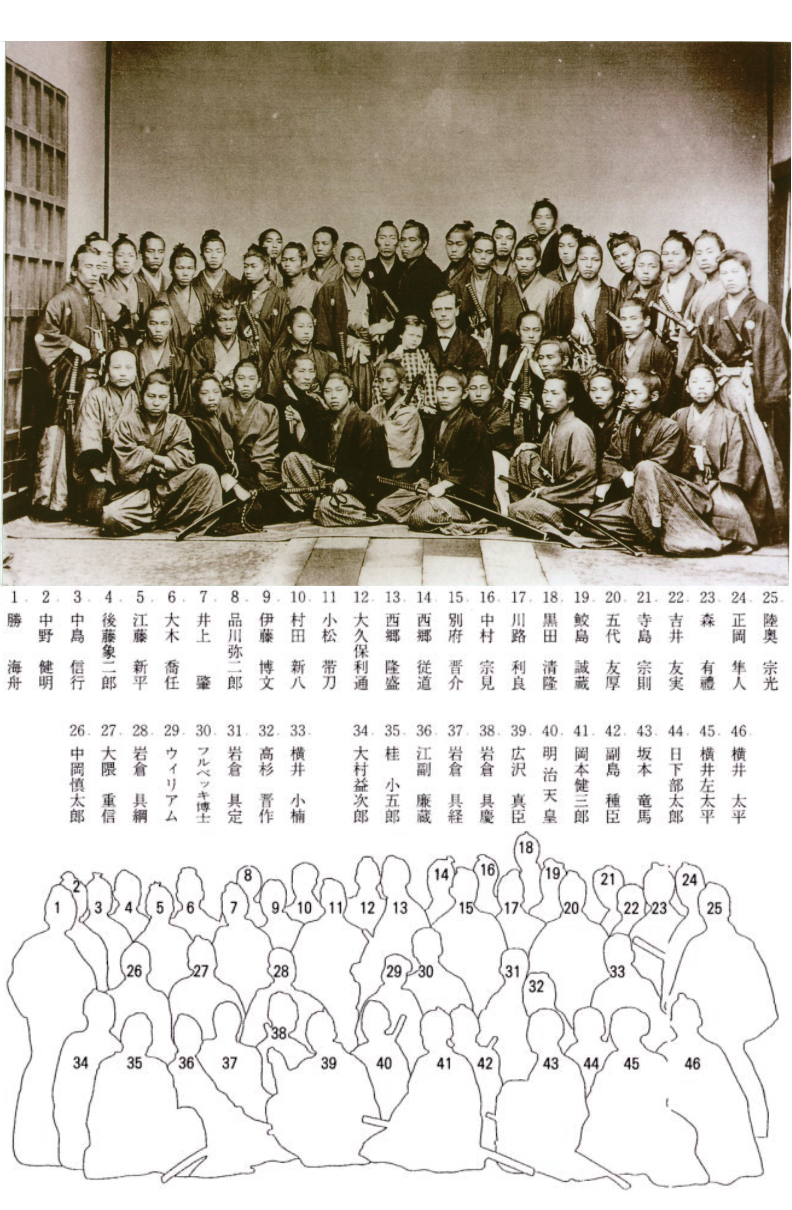 1. 勝 海舟
2. 中野 健明
3. 中島 信行
4. 後藤象二郎
5. 江藤 新平
6. 大木 喬任
7. 井上 肇
8. 品川弥二郎
9. 伊藤 博文
10. 村田 新八
11. 小松 帯刀
12. 大久保利通
13. 西郷 隆盛
14. 西郷 従道
15. 別府 晋介
16. 中村 宗見
17. 川路 利良
18. 黒田 清隆
19. 鮫島 誠蔵
20. 五代 友厚
21. 寺島 宗則
22. 吉井 友実
23. 森 有禮
24. 正岡 隼人
25. 陸奥 宗光
26. 中岡慎太郎
27. 大隈 重信
28. 岩倉 具綱
29. ウィリアム
30. フルベッキ博士
31. 岩倉 具定
32. 高杉 晋作
33. 横井 小楠
34. 大村益次郎
35. 桂 小五郎
36. 江副 廉蔵
37. 岩倉 具経
38. 岩倉 具慶
39. 広沢 真臣
40. 明治天皇
41. 岡本健三郎
42. 副島 種臣
43. 坂本 竜馬
44. 日下部太郎
45. 横井左太平
46. 横井 太平
18
8
14
16
19
2
21
24
1
3
4
5
6
7
9
10
11
12
13
15
17
20
22
23
25
26
27
28
29
30
31
32
33
38
34
35
36
37
39
40
41
42
43
44
45
46